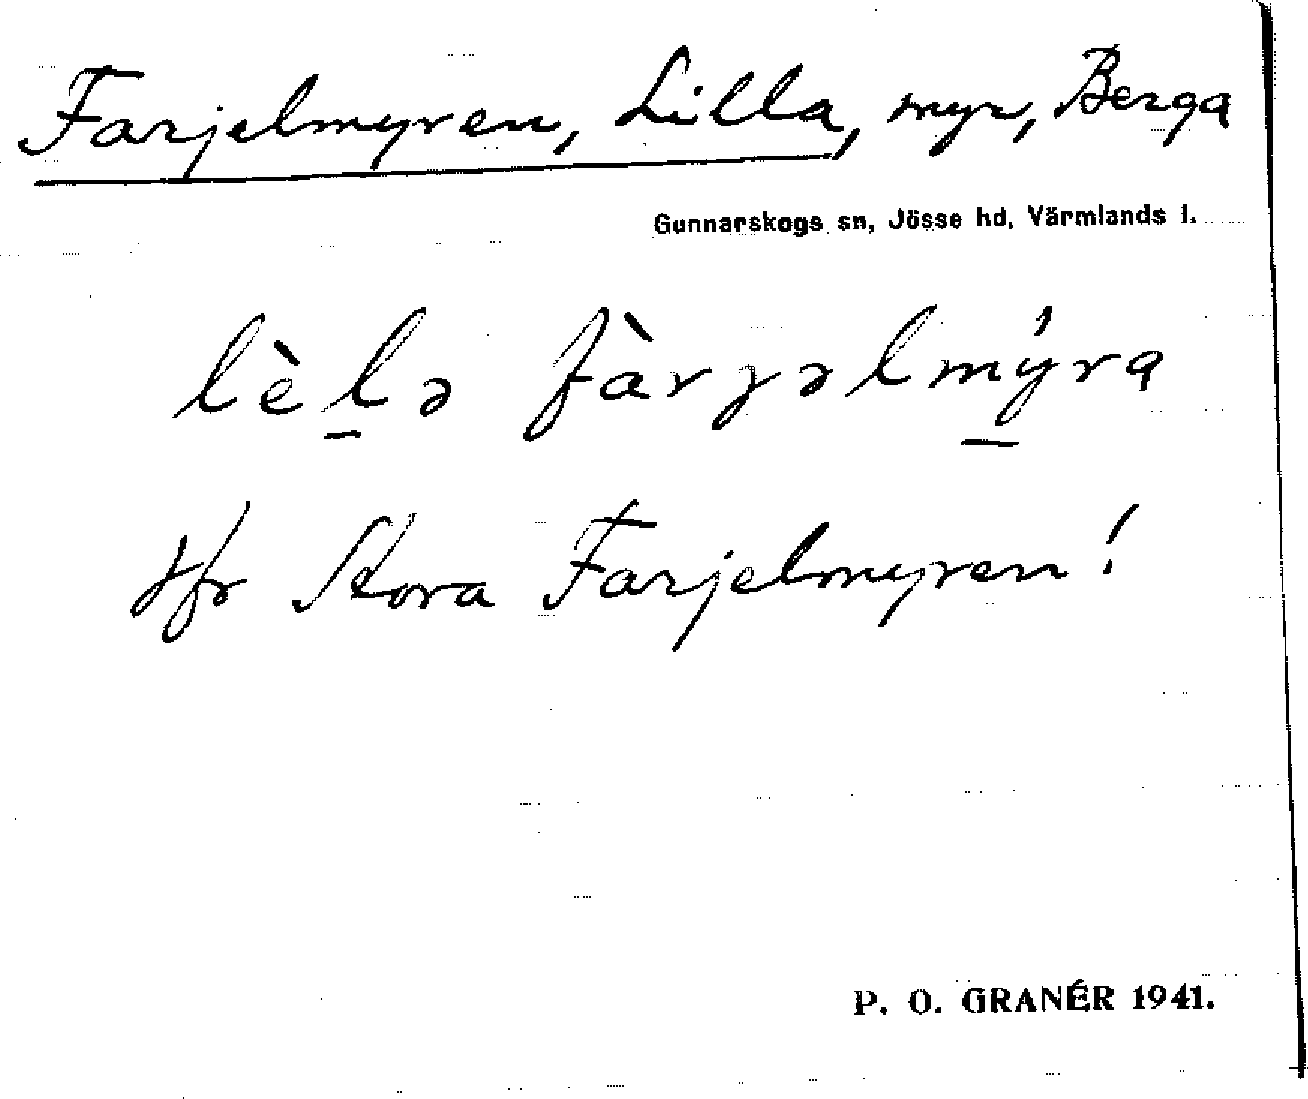 Farjelmyren, Lilla, myr, Berga
Gunnarskogs sn, Jösse hd, Värmlands l.
lèl̠ə fàrjəlm̠ýra
Jfr Stora Farjelmyren!
P. O. GRANÉR 1941.